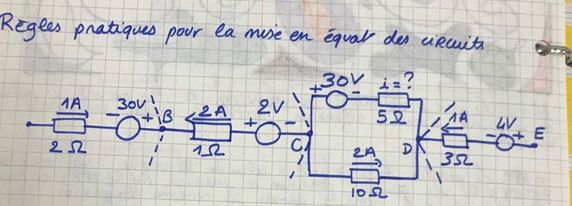 Règles pratiques pour la mise en équat des circuits
30V i=?
+ -
1A 30V B 2A 2V 5Ω 1A 4V E
- + + - C D - +
2Ω 1Ω 2A 3Ω
10Ω